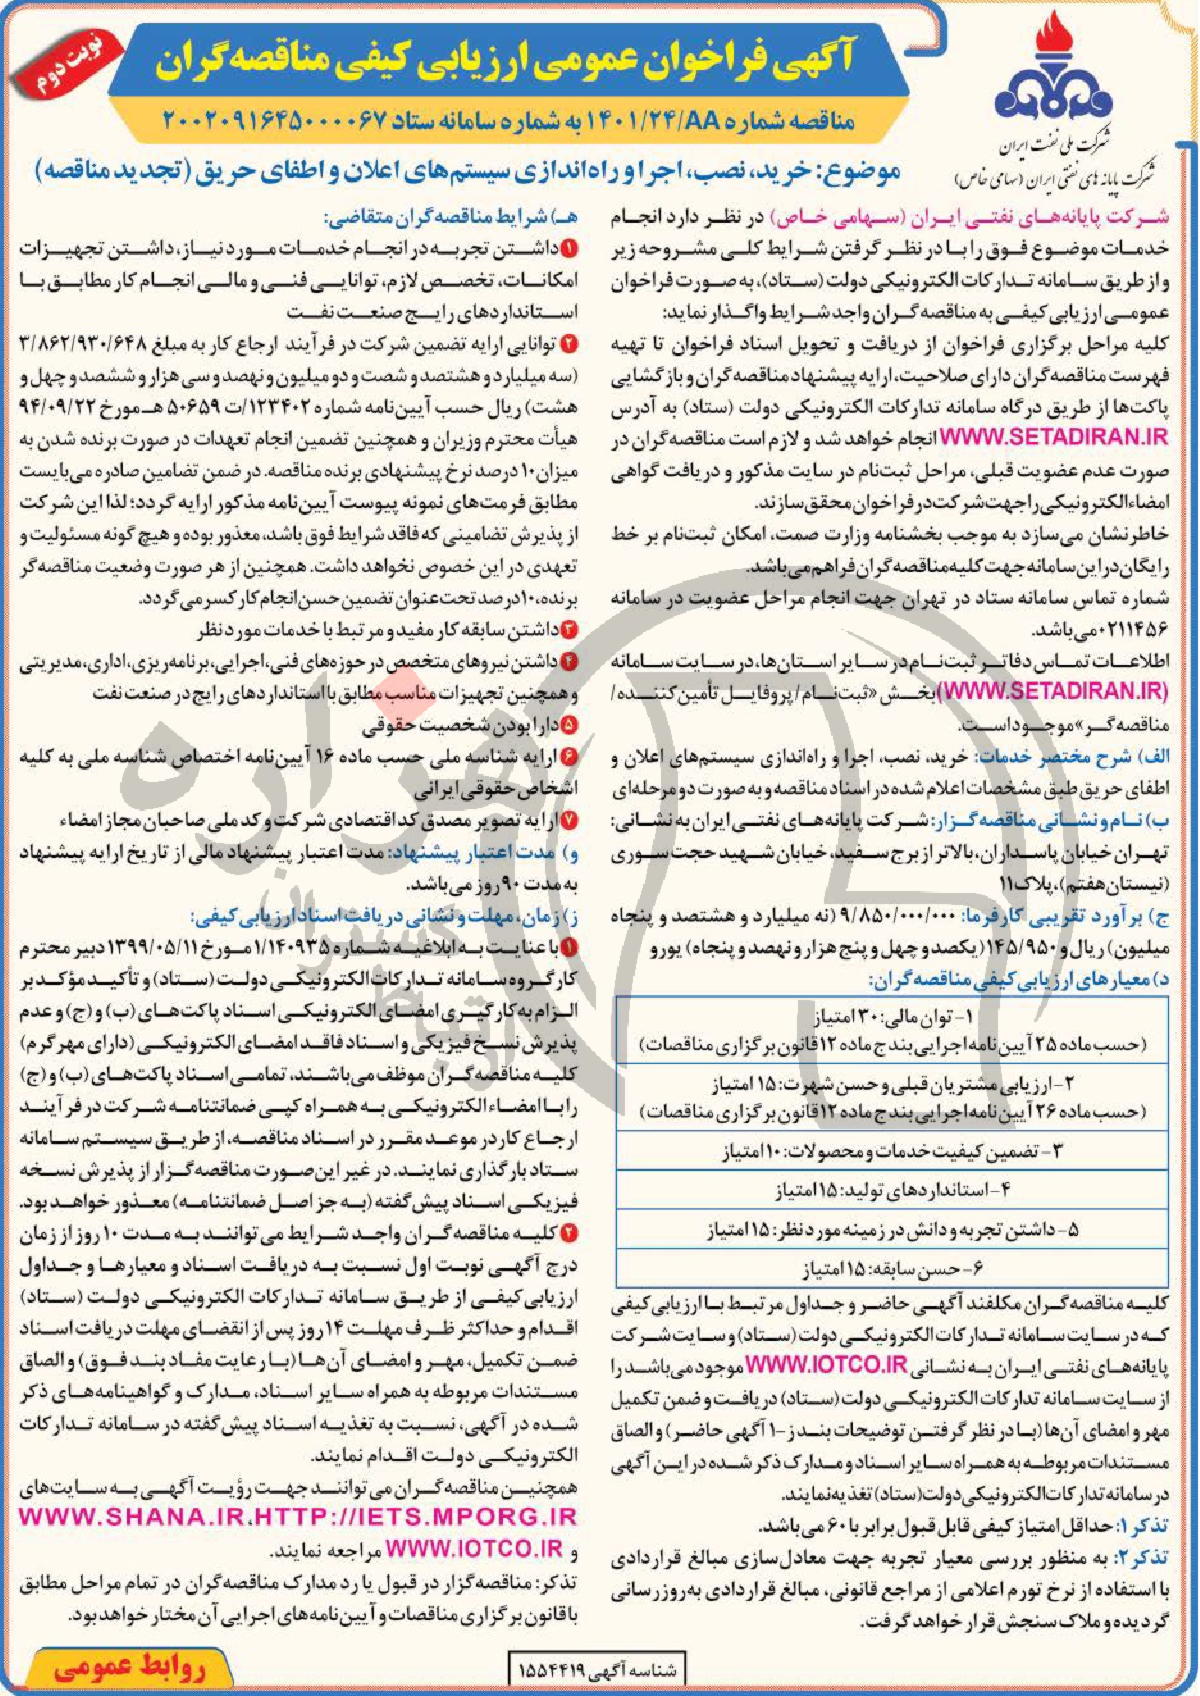 شرکت ملی نفت ایران
شرکت پایانه های نفتی ایران (سهامی خاص)
نوبت دوم
آگهی فراخوان عمومی ارزیابی کیفی مناقصه‌گران
مناقصه شماره ۱۴۰۱/۲۴/AA به شماره سامانه ستاد ۲۰۰۲۰۹۱۶۴۵۰۰۰۰۶۷
موضوع: خرید، نصب، اجرا و راه‌اندازی سیستم‌های اعلان و اطفای حریق (تجدید مناقصه)
شرکت پایانه‌های نفتی ایران (سهامی خاص) در نظر دارد انجام
خدمات موضوع فوق را با در نظر گرفتن شرایط کلی مشروحه زیر
و از طریق سامانه تدارکات الکترونیکی دولت (ستاد)، به صورت فراخوان
عمومی ارزیابی کیفی به مناقصه‌گران واجد شرایط واگذار نماید:
کلیه مراحل برگزاری فراخوان از دریافت و تحویل اسناد فراخوان تا تهیه
فهرست مناقصه‌گران دارای صلاحیت، ارایه پیشنهاد مناقصه‌گران و بازگشایی
پاکت‌ها از طریق درگاه سامانه تدارکات الکترونیکی دولت (ستاد) به آدرس
WWW.SETADIRAN.IR انجام خواهد شد و لازم است مناقصه‌گران در
صورت عدم عضویت قبلی، مراحل ثبت‌نام در سایت مذکور و دریافت گواهی
امضاء الکترونیکی را جهت شرکت در فراخوان محقق سازند.
خاطرنشان می‌سازد به موجب بخشنامه وزارت صمت، امکان ثبت‌نام بر خط
رایگان در این سامانه جهت کلیه مناقصه‌گران فراهم می‌باشد.
شماره تماس سامانه ستاد در تهران جهت انجام مراحل عضویت در سامانه
۰۲۱۱۴۵۶ می‌باشد.
اطلاعات تماس دفاتر ثبت‌نام در سایر استان‌ها، در سایت سامانه
(WWW.SETADIRAN.IR) بخش «ثبت‌نام/پروفایل تأمین‌کننده/
مناقصه‌گر» موجود است.
الف) شرح مختصر خدمات: خرید، نصب، اجرا و راه‌اندازی سیستم‌های اعلان و
اطفای حریق طبق مشخصات اعلام شده در اسناد مناقصه و به صورت دو مرحله‌ای
ب) نام و نشانی مناقصه‌گزار: شرکت پایانه‌های نفتی ایران به نشانی:
تهران خیابان پاسداران، بالاتر از برج سفید، خیابان شهید حجت سوری
(نیستان هفتم)، پلاک ۱۱
ج) برآورد تقریبی کارفرما: ۹/۸۵۰/۰۰۰/۰۰۰ (نه میلیارد و هشتصد و پنجاه
میلیون) ریال و ۱۴۵/۹۵۰ (یکصد و چهل و پنج هزار و نهصد و پنجاه) یورو
د) معیارهای ارزیابی کیفی مناقصه‌گران:
۱- توان مالی: ۳۰ امتیاز
(حسب ماده ۲۵ آیین‌نامه اجرایی بند ج ماده ۱۲ قانون برگزاری مناقصات)
۲- ارزیابی مشتریان قبلی و حسن شهرت: ۱۵ امتیاز
(حسب ماده ۲۶ آیین‌نامه اجرایی بند ج ماده ۱۲ قانون برگزاری مناقصات)
۳- تضمین کیفیت خدمات و محصولات: ۱۰ امتیاز
۴- استانداردهای تولید: ۱۵ امتیاز
۵- داشتن تجربه و دانش در زمینه مورد نظر: ۱۵ امتیاز
۶- حسن سابقه: ۱۵ امتیاز
کلیه مناقصه‌گران مکلفند آگهی حاضر و جداول مرتبط با ارزیابی کیفی
که در سایت سامانه تدارکات الکترونیکی دولت (ستاد) و سایت شرکت
پایانه‌های نفتی ایران به نشانی WWW.IOTCO.IR موجود می‌باشد را
از سایت سامانه تدارکات الکترونیکی دولت (ستاد) دریافت و ضمن تکمیل
مهر و امضای آن‌ها (با در نظر گرفتن توضیحات بند ز-۱ آگهی حاضر) و الصاق
مستندات مربوطه به همراه سایر اسناد و مدارک ذکر شده در این آگهی
در سامانه تدارکات الکترونیکی دولت (ستاد) تغذیه نمایند.
تذکر ۱: حداقل امتیاز کیفی قابل قبول برابر با ۶۰ می‌باشد.
تذکر ۲: به منظور بررسی معیار تجربه جهت معادل‌سازی مبالغ قراردادی
با استفاده از نرخ تورم اعلامی از مراجع قانونی، مبالغ قراردادی به‌روزرسانی
گردیده و ملاک سنجش قرار خواهد گرفت.
هـ) شرایط مناقصه‌گران متقاضی:
۱ داشتن تجربه در انجام خدمات مورد نیاز، داشتن تجهیزات
امکانات، تخصص لازم، توانایی فنی و مالی انجام کار مطابق با
استانداردهای رایج صنعت نفت
۲ توانایی ارایه تضمین شرکت در فرآیند ارجاع کار به مبلغ ۳/۸۶۲/۹۳۰/۶۴۸
(سه میلیارد و هشتصد و شصت و دو میلیون و نهصد و سی هزار و ششصد و چهل و
هشت) ریال حسب آیین‌نامه شماره ۱۲۳۴۰۲/ت ۵۰۶۵۹ هـ مورخ ۹۴/۰۹/۲۲
هیأت محترم وزیران و همچنین تضمین انجام تعهدات در صورت برنده شدن به
میزان ۱۰ درصد نرخ پیشنهادی برنده مناقصه. در ضمن تضامین صادره می‌بایست
مطابق فرمت‌های نمونه پیوست آیین‌نامه مذکور ارایه گردد؛ لذا این شرکت
از پذیرش تضامینی که فاقد شرایط فوق باشد، معذور بوده و هیچ گونه مسئولیت و
تعهدی در این خصوص نخواهد داشت. همچنین از هر صورت وضعیت مناقصه‌گر
برنده، ۱۰ درصد تحت عنوان تضمین حسن انجام کار کسر می‌گردد.
۳ داشتن سابقه کار مفید و مرتبط با خدمات مورد نظر
۴ داشتن نیروهای متخصص در حوزه‌های فنی، اجرایی، برنامه‌ریزی، اداری، مدیریتی
و همچنین تجهیزات مناسب مطابق با استانداردهای رایج در صنعت نفت
۵ دارا بودن شخصیت حقوقی
۶ ارایه شناسه ملی حسب ماده ۱۶ آیین‌نامه اختصاص شناسه ملی به کلیه
اشخاص حقوقی ایرانی
۷ ارایه تصویر مصدق کد اقتصادی شرکت و کد ملی صاحبان مجاز امضاء
و) مدت اعتبار پیشنهاد: مدت اعتبار پیشنهاد مالی از تاریخ ارایه پیشنهاد
به مدت ۹۰ روز می‌باشد.
ز) زمان، مهلت و نشانی دریافت اسناد ارزیابی کیفی:
۱ با عنایت به ابلاغیه شماره ۱/۱۴۰۹۳۵ مورخ ۱۳۹۹/۰۵/۱۱ دبیر محترم
کارگروه سامانه تدارکات الکترونیکی دولت (ستاد) و تأکید مؤکد بر
الزام به کارگیری امضای الکترونیکی اسناد پاکت‌های (ب) و (ج) و عدم
پذیرش نسخ فیزیکی و اسناد فاقد امضای الکترونیکی (دارای مهر گرم)
کلیه مناقصه‌گران موظف می‌باشند، تمامی اسناد پاکت‌های (ب) و (ج)
را با امضاء الکترونیکی به همراه کپی ضمانتنامه شرکت در فرآیند
ارجاع کار در موعد مقرر در اسناد مناقصه، از طریق سیستم سامانه
ستاد بارگذاری نمایند. در غیر این صورت مناقصه‌گزار از پذیرش نسخه
فیزیکی اسناد پیش گفته (به جز اصل ضمانتنامه) معذور خواهد بود.
۲ کلیه مناقصه‌گران واجد شرایط می‌توانند به مدت ۱۰ روز از زمان
درج آگهی نوبت اول نسبت به دریافت اسناد و معیارها و جداول
ارزیابی کیفی از طریق سامانه تدارکات الکترونیکی دولت (ستاد)
اقدام و حداکثر ظرف مهلت ۱۴ روز پس از انقضای مهلت دریافت اسناد
ضمن تکمیل، مهر و امضای آن‌ها (با رعایت مفاد بند فوق) و الصاق
مستندات مربوطه به همراه سایر اسناد، مدارک و گواهینامه‌های ذکر
شده در آگهی، نسبت به تغذیه اسناد پیش گفته در سامانه تدارکات
الکترونیکی دولت اقدام نمایند.
همچنین مناقصه‌گران می‌توانند جهت رؤیت آگهی به سایت‌های
WWW.SHANA.IR، HTTP://IETS.MPORG.IR
و WWW.IOTCO.IR مراجعه نمایند.
تذکر: مناقصه‌گزار در قبول یا رد مدارک مناقصه‌گران در تمام مراحل مطابق
با قانون برگزاری مناقصات و آیین‌نامه‌های اجرایی آن مختار خواهد بود.
شناسه آگهی ۱۵۵۴۴۱۹
روابط عمومی
هزاره